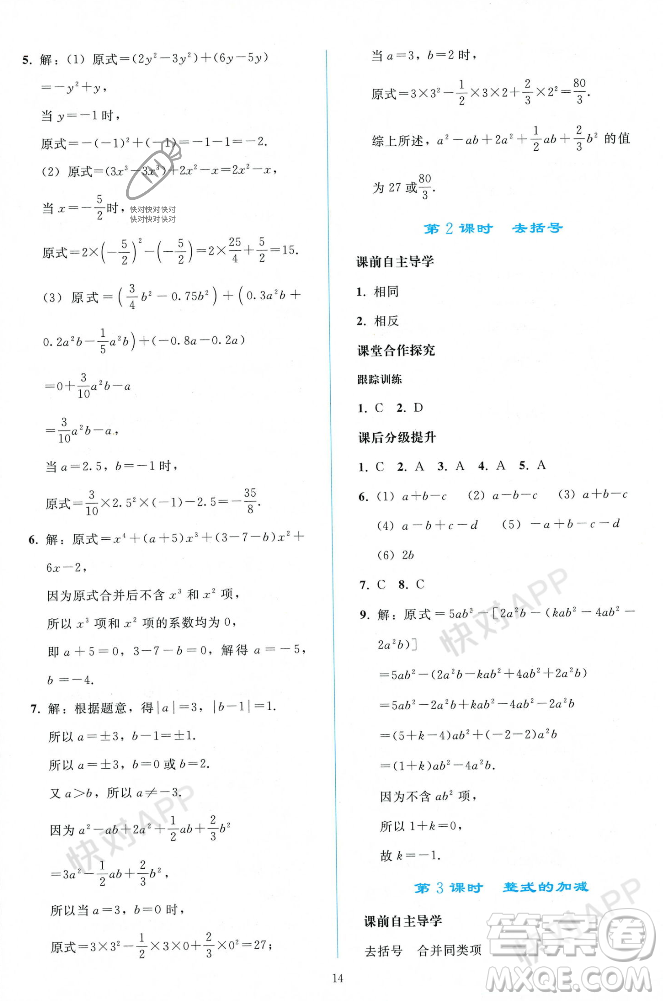 5. 解：(1) 原式＝(2y²－3y²)＋(6y－5y)
＝－y²＋y,
当 y＝－1 时,
原式＝－(－1)²＋(－1)＝－1－1＝－2.
(2) 原式＝(3x³－3x³)＋2x²－x＝2x²－x,
当 x＝－5/2 时,
快对快对快对
快对快对快对
原式＝2×(－5/2)²－(－5/2)＝2×25/4＋5/2＝15.
(3) 原式＝(3/4 b²－0.75b²)＋(0.3a²b＋
0.2a²b－1/5 a²b)＋(－0.8a－0.2a)
＝0＋3/10 a²b－a
＝3/10 a²b－a,
当 a＝2.5, b＝－1 时,
原式＝3/10×2.5²×(－1)－2.5＝－35/8.
6. 解：原式＝x⁴＋(a＋5)x³＋(3－7－b)x²＋
6x－2,
因为原式合并后不含 x³ 和 x² 项,
所以 x³ 项和 x² 项的系数均为 0,
即 a＋5＝0, 3－7－b＝0, 解得 a＝－5,
b＝－4.
7. 解：根据题意, 得|a|＝3, |b－1|＝1.
所以 a＝±3, b－1＝±1.
所以 b＝0 或 b＝2.
又 a＞b, 所以 a＝－3 不合题意.
因为 a²－1/2 ab＋2a²＋2/3 b²
＝3a²－1/2 ab＋2/3 b²,
所以当 a＝3, b＝0 时,
原式＝3×3²－1/2×3×0＋2/3×0＝27;
当 a＝3, b＝2 时,
原式＝3×3²－1/2×3×2＋2/3×2²＝80/3.
综上所述, a²－ab＋1/2 ab＋2/3 b² 的值
为 27 或 80/3.
第 2 课时 去括号
课前自主导学
1. 相同
2. 相反
课堂合作探究
跟踪训练
1. C 2. D
课后分级提升
1. C 2. A 3. A 4. A 5. A
6. (1) a＋b－c (2) a－b－c (3) a＋b－c
(4) a－b＋c－d (5) a－b－c－d
(6) 2b
7. C 8. C
9. 解：原式＝5ab²－[2a²b－(kab²－4ab²－
2a²b)]
＝5ab²－(2a²b－kab²＋4ab²＋2a²b)
＝5ab²－2a²b＋kab²－4ab²－2a²b
＝(5＋k－4)ab²－(2＋2)a²b
＝(1＋k)ab²－4a²b.
因为不含 ab² 项,
所以 1＋k＝0,
故 k＝－1.
第 3 课时 整式的加减
课前自主导学
去括号 合并同类项
14
快对APP
快对APP
快对APP
答案圈
MXQE.COM